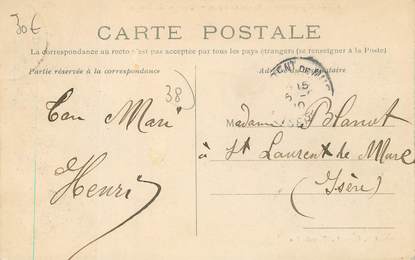 30€
CARTE POSTALE
La correspondance au recto n'est pas acceptée par tous les pays étrangers (se renseigner à la Poste)
Partie réservée à la correspondance
38
Ton Mari
Henri
Madame Blanvot
à St Laurent de Mure
(Isère)